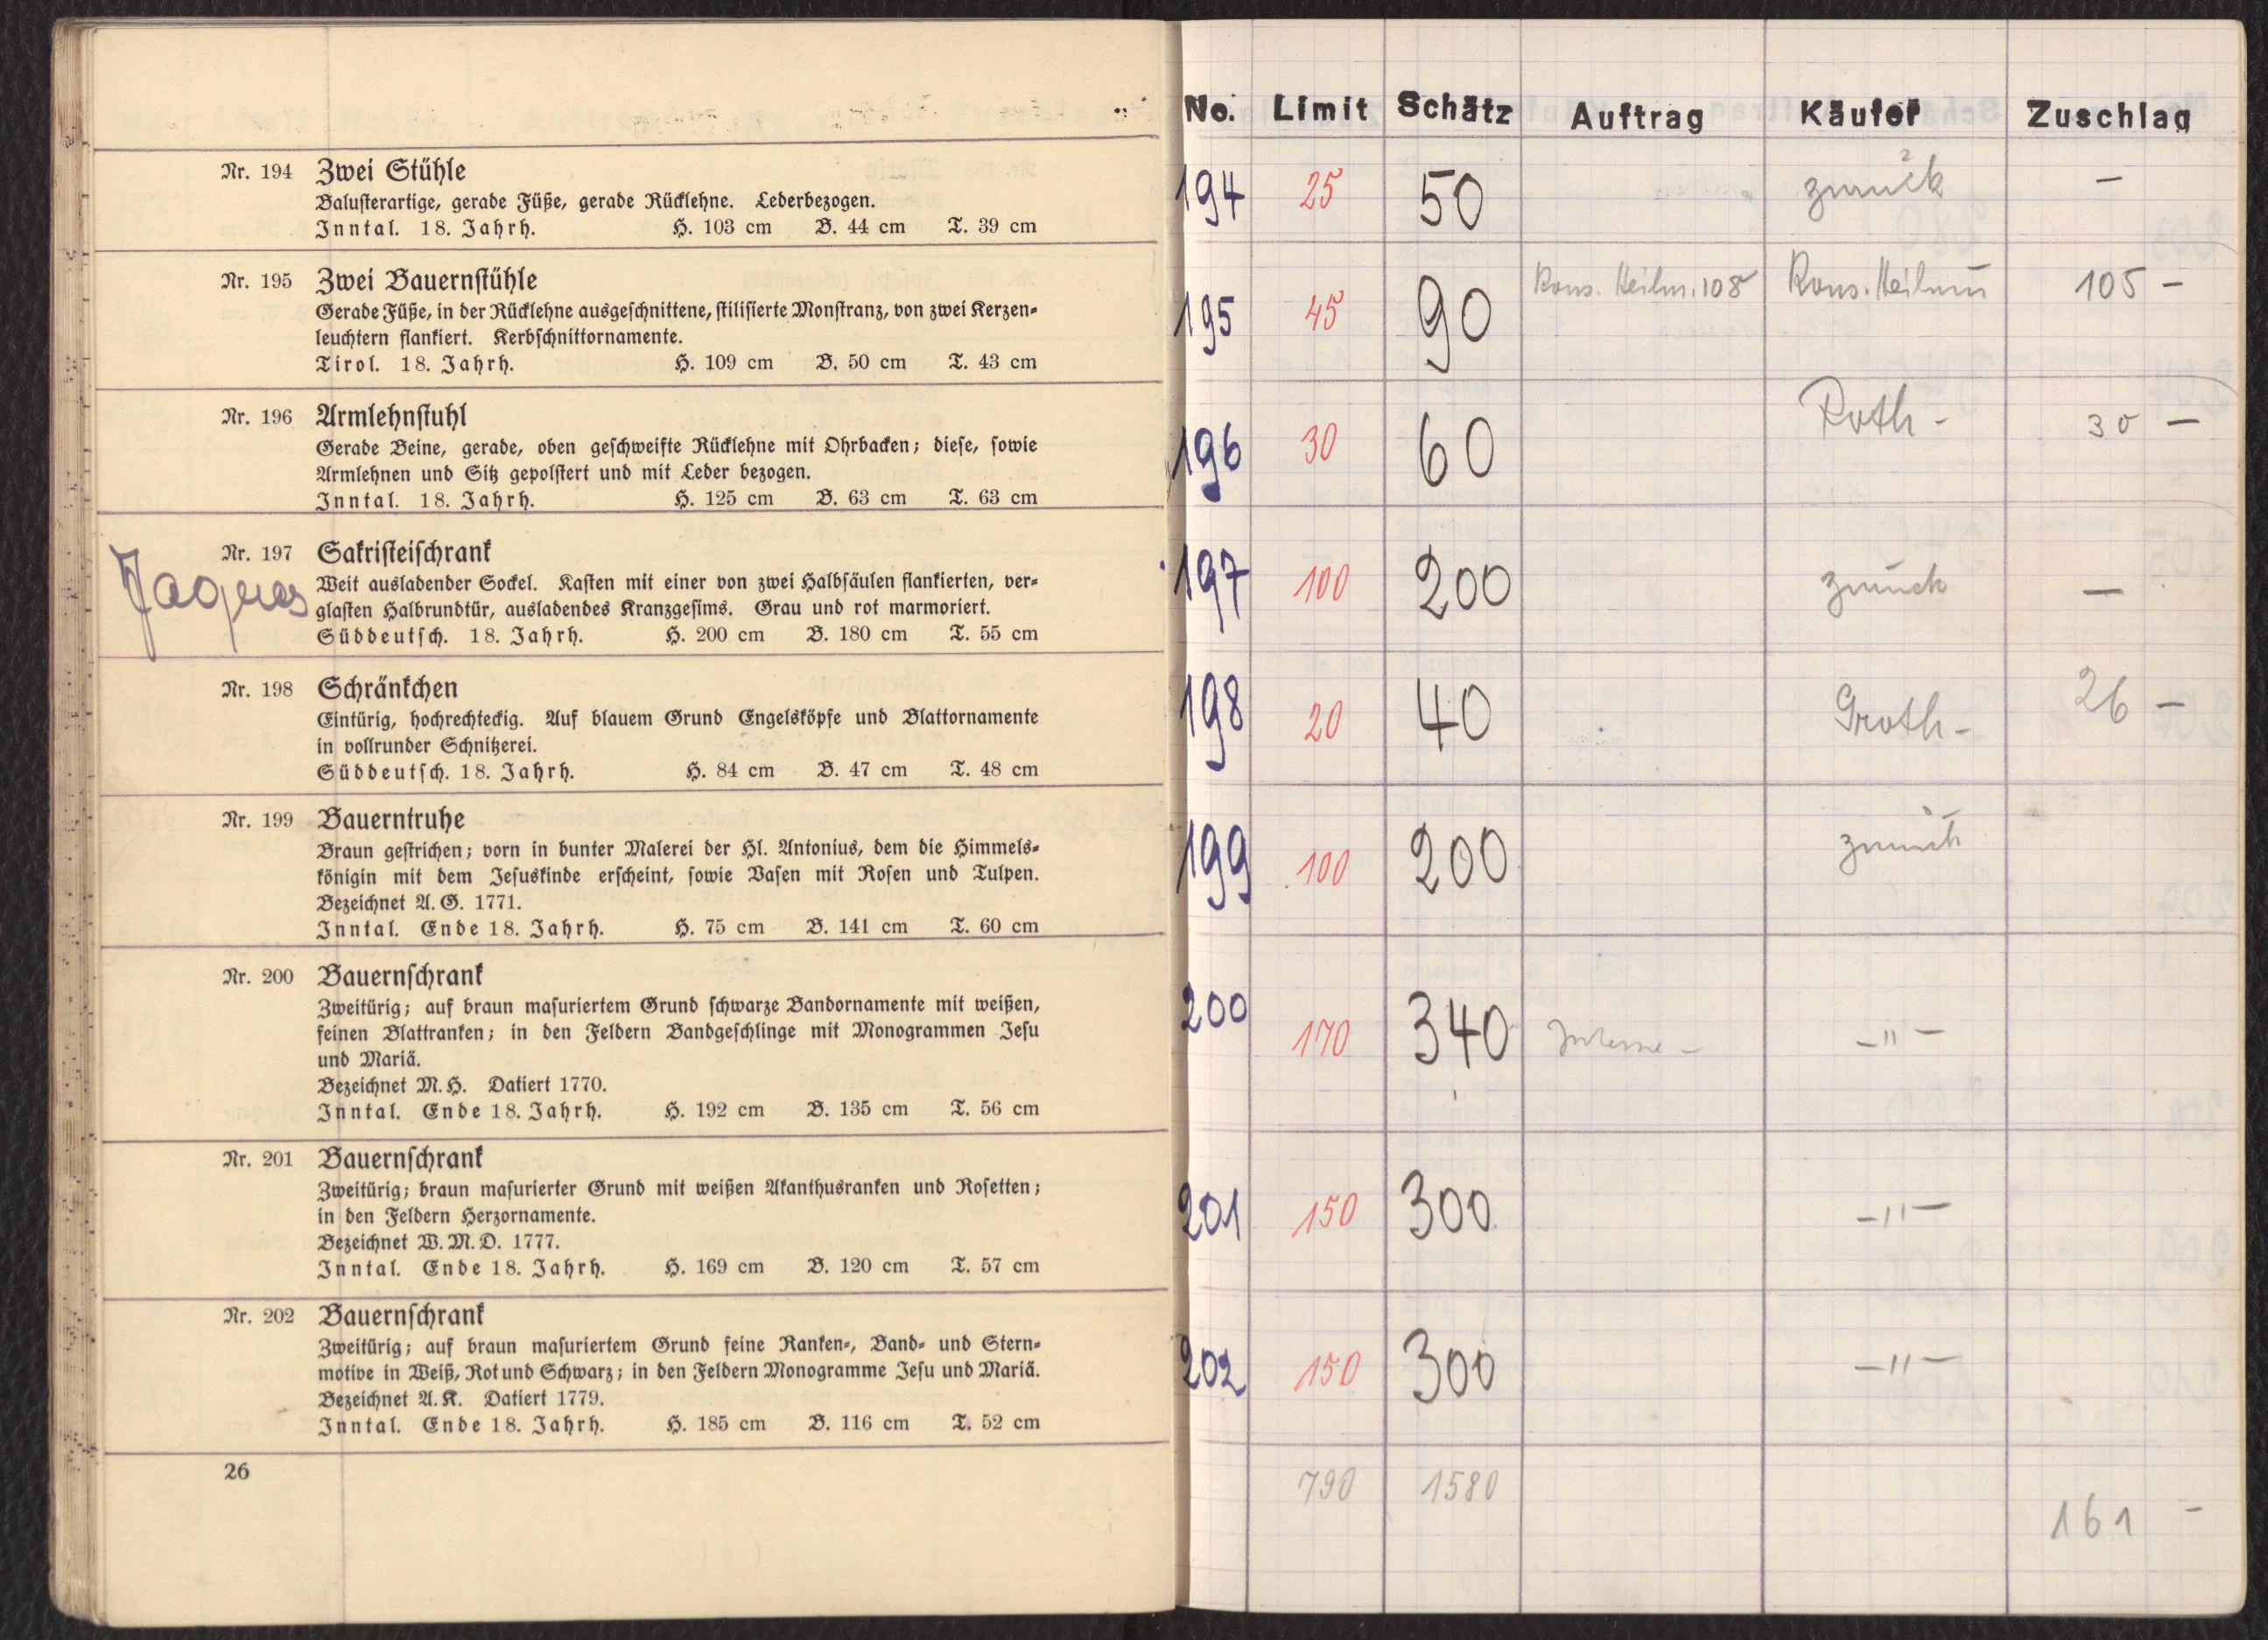 Nr. 194 Zwei Stühle
Balusterartige, gerade Füße, gerade Rücklehne. Lederbezogen.
Inntal. 18. Jahrh. H. 103 cm B. 44 cm T. 39 cm
Nr. 195 Zwei Bauernstühle
Gerade Füße, in der Rücklehne ausgeschnittene, stilisierte Monstranz, von zwei Kerzen-
leuchtern flankiert. Kerbschnittornamente.
Tirol. 18. Jahrh. H. 109 cm B. 50 cm T. 43 cm
Nr. 196 Armlehnstuhl
Gerade Beine, gerade, oben geschweifte Rücklehne mit Ohrbacken; diese, sowie
Armlehnen und Sitz gepolstert und mit Leder bezogen.
Inntal. 18. Jahrh. H. 125 cm B. 63 cm T. 63 cm
Nr. 197 Sakristeischrank
Weit ausladender Sockel. Kasten mit einer von zwei Halbsäulen flankierten, ver-
glasten Halbrundtür, ausladendes Kranzgesims. Grau und rot marmoriert.
Süddeutsch. 18. Jahrh. H. 200 cm B. 180 cm T. 55 cm
Nr. 198 Schränkchen
Eintürig, hochrechteckig. Auf blauem Grund Engelsköpfe und Blattornamente
in vollrunder Schnitzerei.
Süddeutsch. 18. Jahrh. H. 84 cm B. 47 cm T. 48 cm
Nr. 199 Bauerntruhe
Braun gestrichen; vorn in bunter Malerei der Hl. Antonius, dem die Himmels-
königin mit dem Jesuskinde erscheint, sowie Vasen mit Rosen und Tulpen.
Bezeichnet A. G. 1771.
Inntal. Ende 18. Jahrh. H. 75 cm B. 141 cm T. 60 cm
Nr. 200 Bauernschrank
Zweitürig; auf braun masuriertem Grund schwarze Bandornamente mit weißen,
feinen Blattranken; in den Feldern Bandgeschlinge mit Monogrammen Jesu
und Mariä.
Bezeichnet M. H. Datiert 1770.
Inntal. Ende 18. Jahrh. H. 192 cm B. 135 cm T. 56 cm
Nr. 201 Bauernschrank
Zweitürig; braun masurierter Grund mit weißen Akanthusranken und Rosetten;
in den Feldern Herzornamente.
Bezeichnet W. M. D. 1777.
Inntal. Ende 18. Jahrh. H. 169 cm B. 120 cm T. 57 cm
Nr. 202 Bauernschrank
Zweitürig; auf braun masuriertem Grund feine Ranken-, Band- und Stern-
motive in Weiß, Rot und Schwarz; in den Feldern Monogramme Jesu und Mariä.
Bezeichnet A. K. Datiert 1779.
Inntal. Ende 18. Jahrh. H. 185 cm B. 116 cm T. 52 cm
26
No. Limit Schätz Auftrag Käufer Zuschlag
194 25 50 zurück —
195 45 90 Kons. Heilm. 108 Kons. 105 —
196 30 60 Roth - 30 —
197 100 200 zurück —
198 20 40 Groth - 26 —
199 100 200 zurück
200 170 340 — " —
201 150 300 — " —
202 150 300 — " —
790 1580
161 —